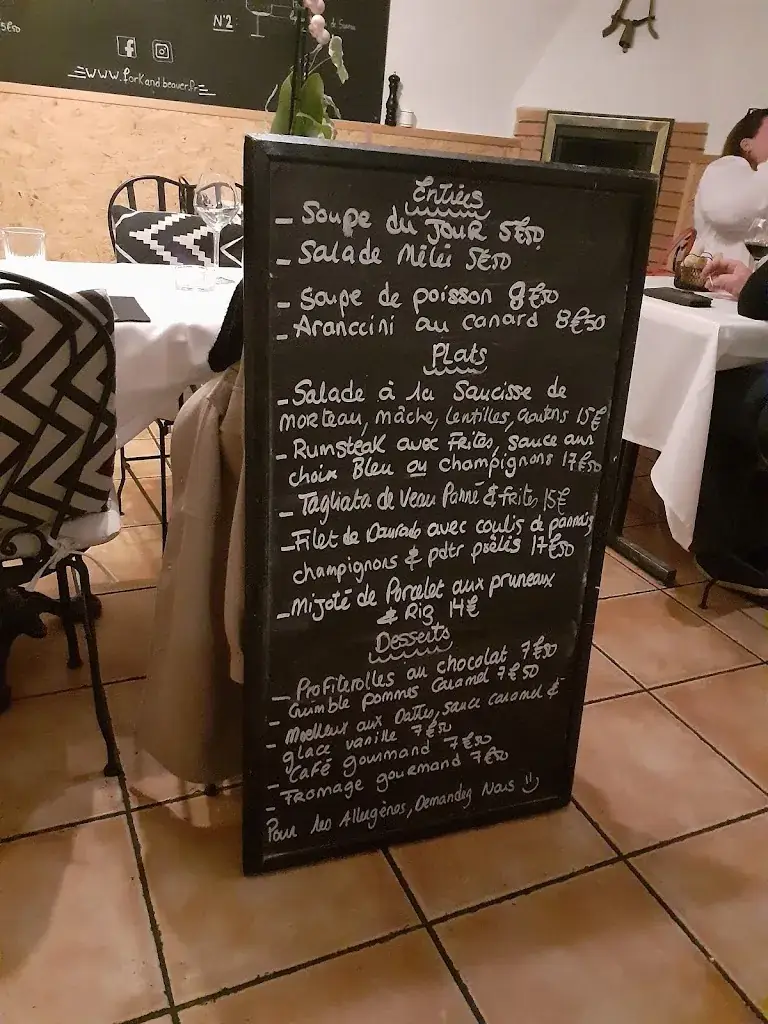 5€50
N°2:
www.forkandbeaver.fr
Entrées
- Soupe du JOUR 5€50
- Salade Mêlée 5€50
- Soupe de poisson 8€50
- Aranccini au canard 8€50
Plats
- Salade à la Saucisse de
morteau, mâche, lentilles, croutons 15€
- Rumsteak avec Frites, sauce aux
choix Bleu ou champignons 17€50
- Tagliata de Veau Panné & frites 15€
- Filet de Daurade avec coulis de pannais
champignons & pdtr poêlés 17€50
- Mijoté de Porcelet aux pruneaux
& Riz 14€
Desserts
- Profiterolles au chocolat 7€50
- Crumble pommes Caramel 7€50
- Moelleux aux Dattes, sauce caramel &
glace vanille 7€50
- Café gourmand 7€50
- Fromage gourmand 7€50
Pour les Allergènes, Demandez Nous